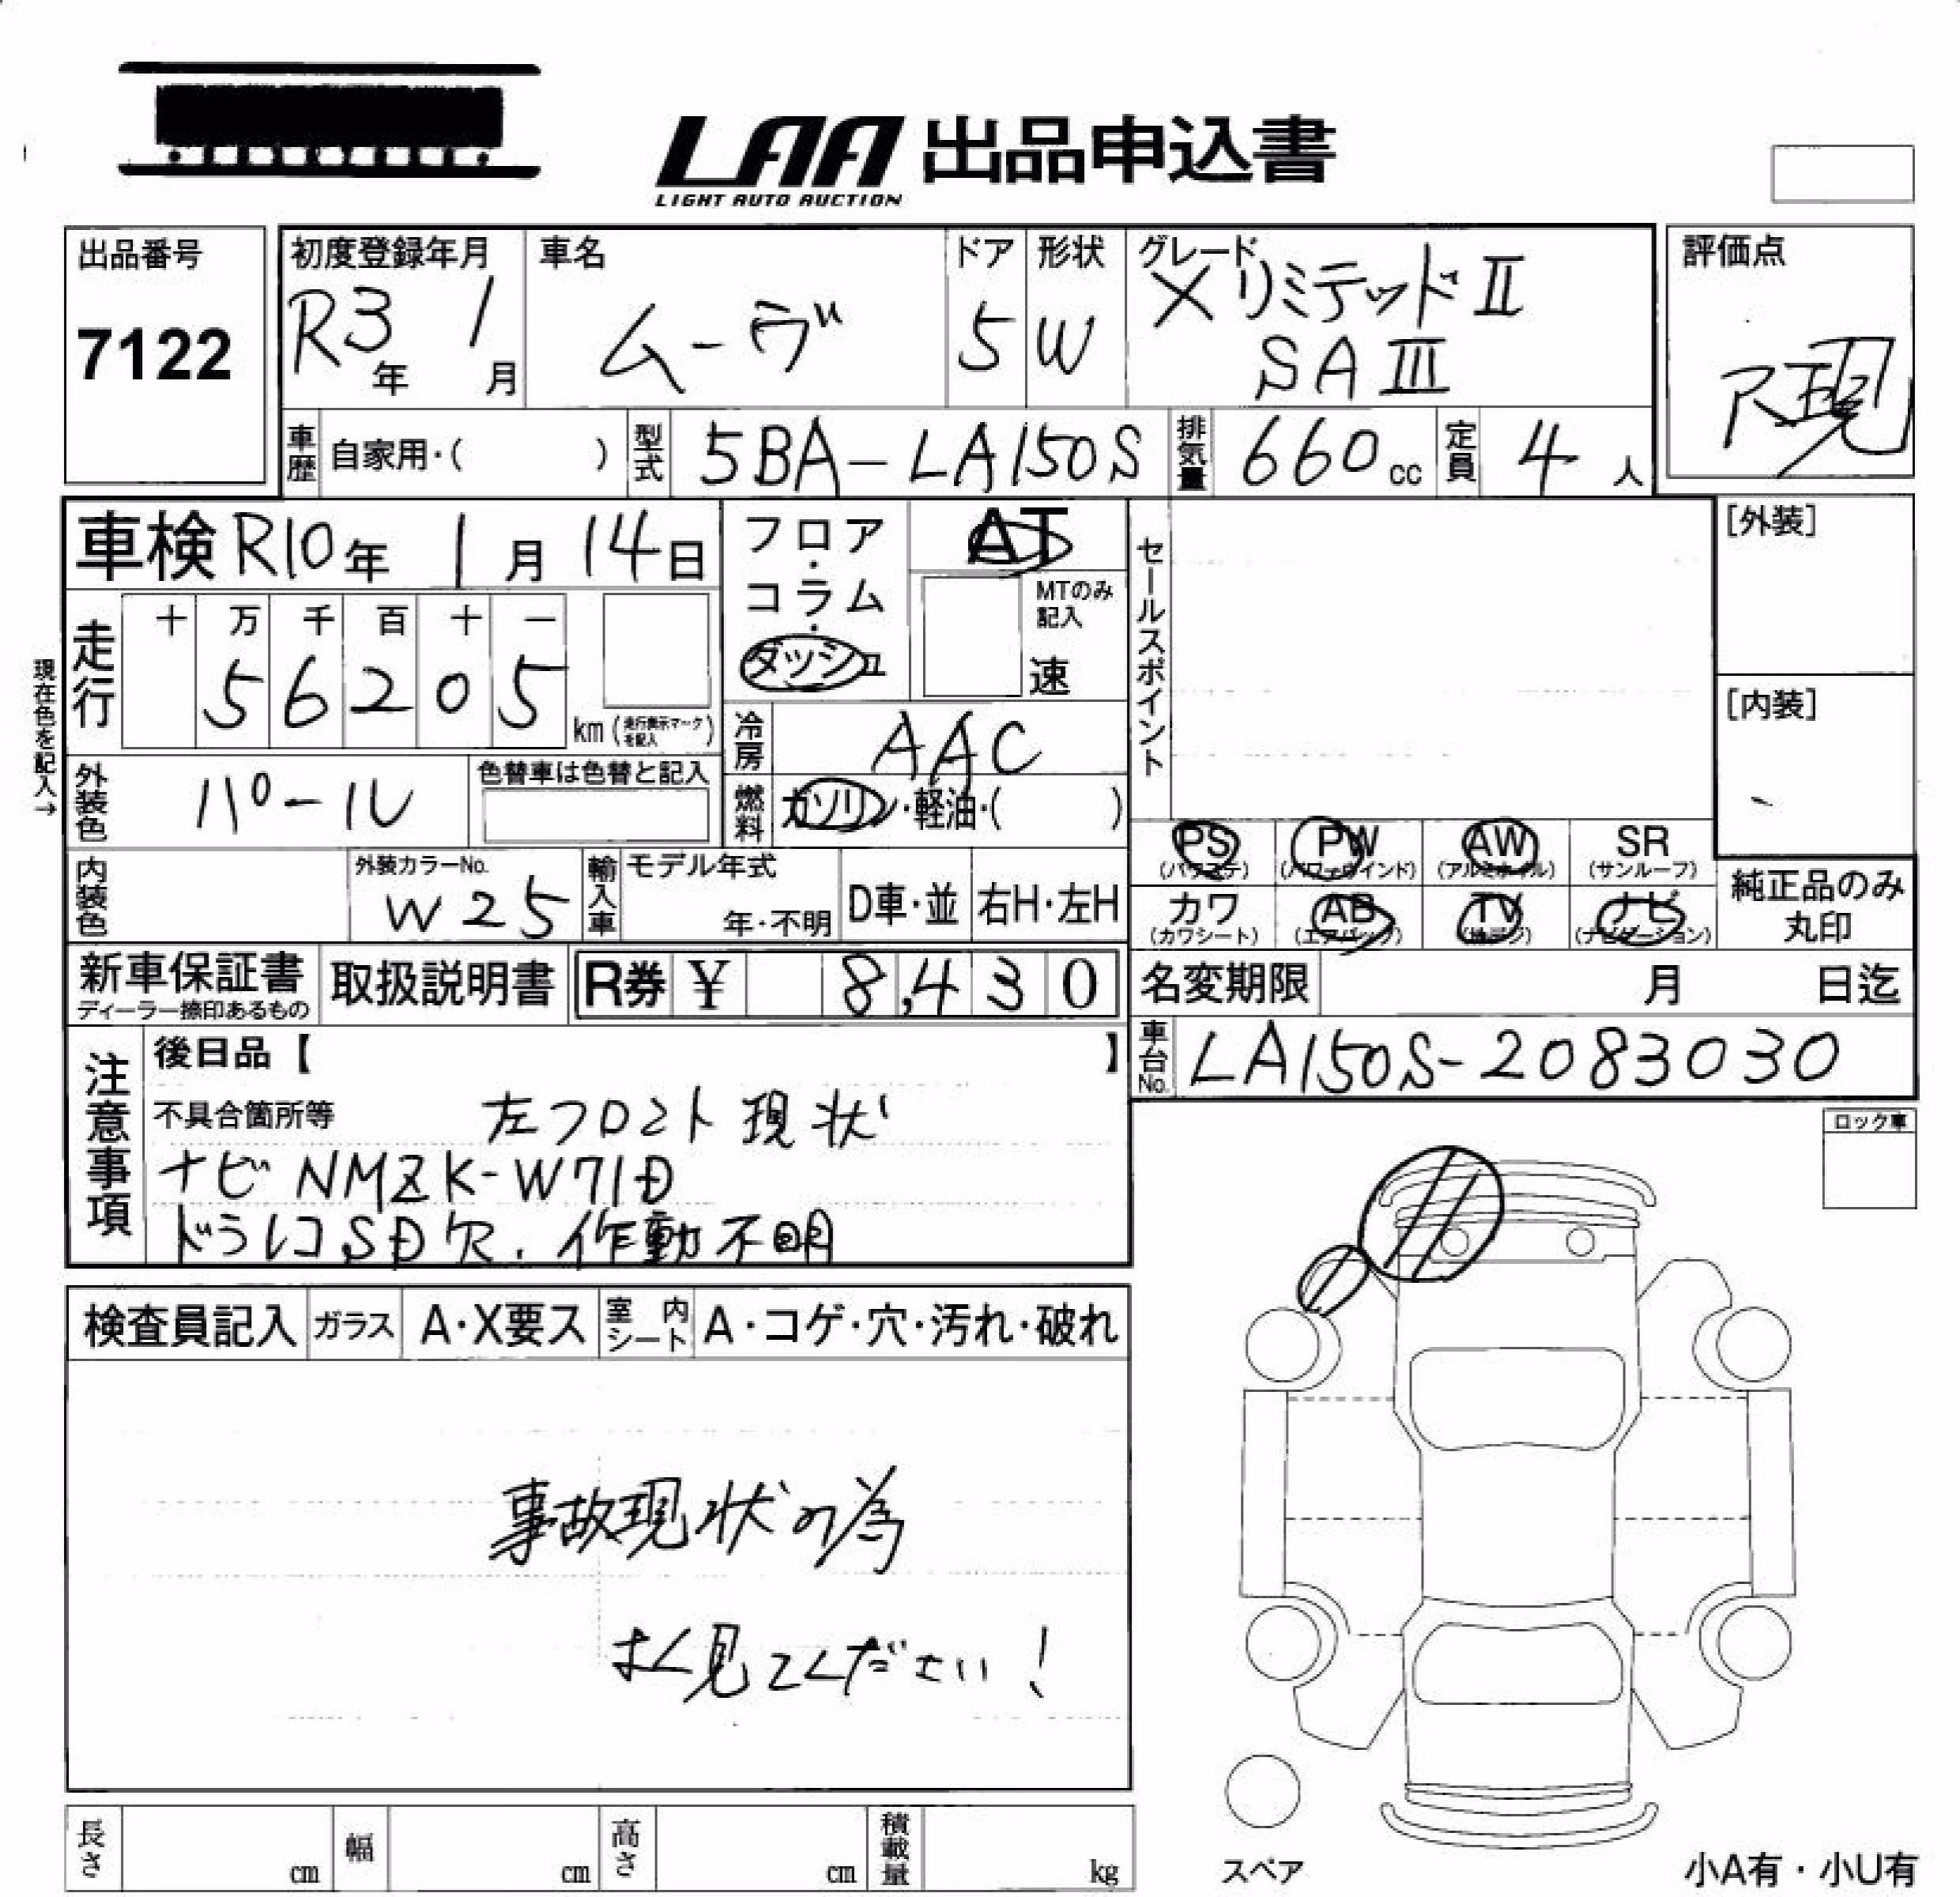 LAA 出品申込書
LIGHT AUTO AUCTION
出品番号
7122
初度登録年月
R3年 1月
車名
ムーヴ
ドア
5
形状
W
グレード
X リミテッドⅡ
SAⅢ
評価点
現
車歴 自家用・( )
型式 5BA-LA150S
排気量 660cc
定員 4人
車検 R10年 1月 14日
フロア・コラム・ダッシュ
AT
MTのみ記入
速
セールスポイント
[外装]
[内装]
現在色を記入→
走行
十 万 千 百 十 一
5 6 2 0 5
km (走行表示マークを記入)
冷房 AAC
外装色 パール
色替車は色替と記入
燃料 ガソリン・軽油・( )
内装色
外装カラーNo.
W25
輸入車
モデル年式
年・不明
D車・並
右H・左H
PS (パワステ)
PW (パワーウインド)
AW (アルミホイル)
SR (サンルーフ)
カワ (カワシート)
AB (エアバッグ)
TV (地デジ)
ナビ (ナビゲーション)
純正品のみ
丸印
新車保証書
ディーラー捺印あるもの
取扱説明書
R券 ¥ 8,430
名変期限 月 日迄
車台No. LA150S-2083030
注意事項
後日品【 】
不具合箇所等 左フロント現状
ナビ NMZK-W71D
ドラレコSD欠.作動不明
ロック車
検査員記入
ガラス A・X要ス
室内シート A・コゲ・穴・汚れ・破れ
事故現状の為
よく見てください!
長さ cm
幅 cm
高さ cm
積載量 kg
スペア
小A有・小U有